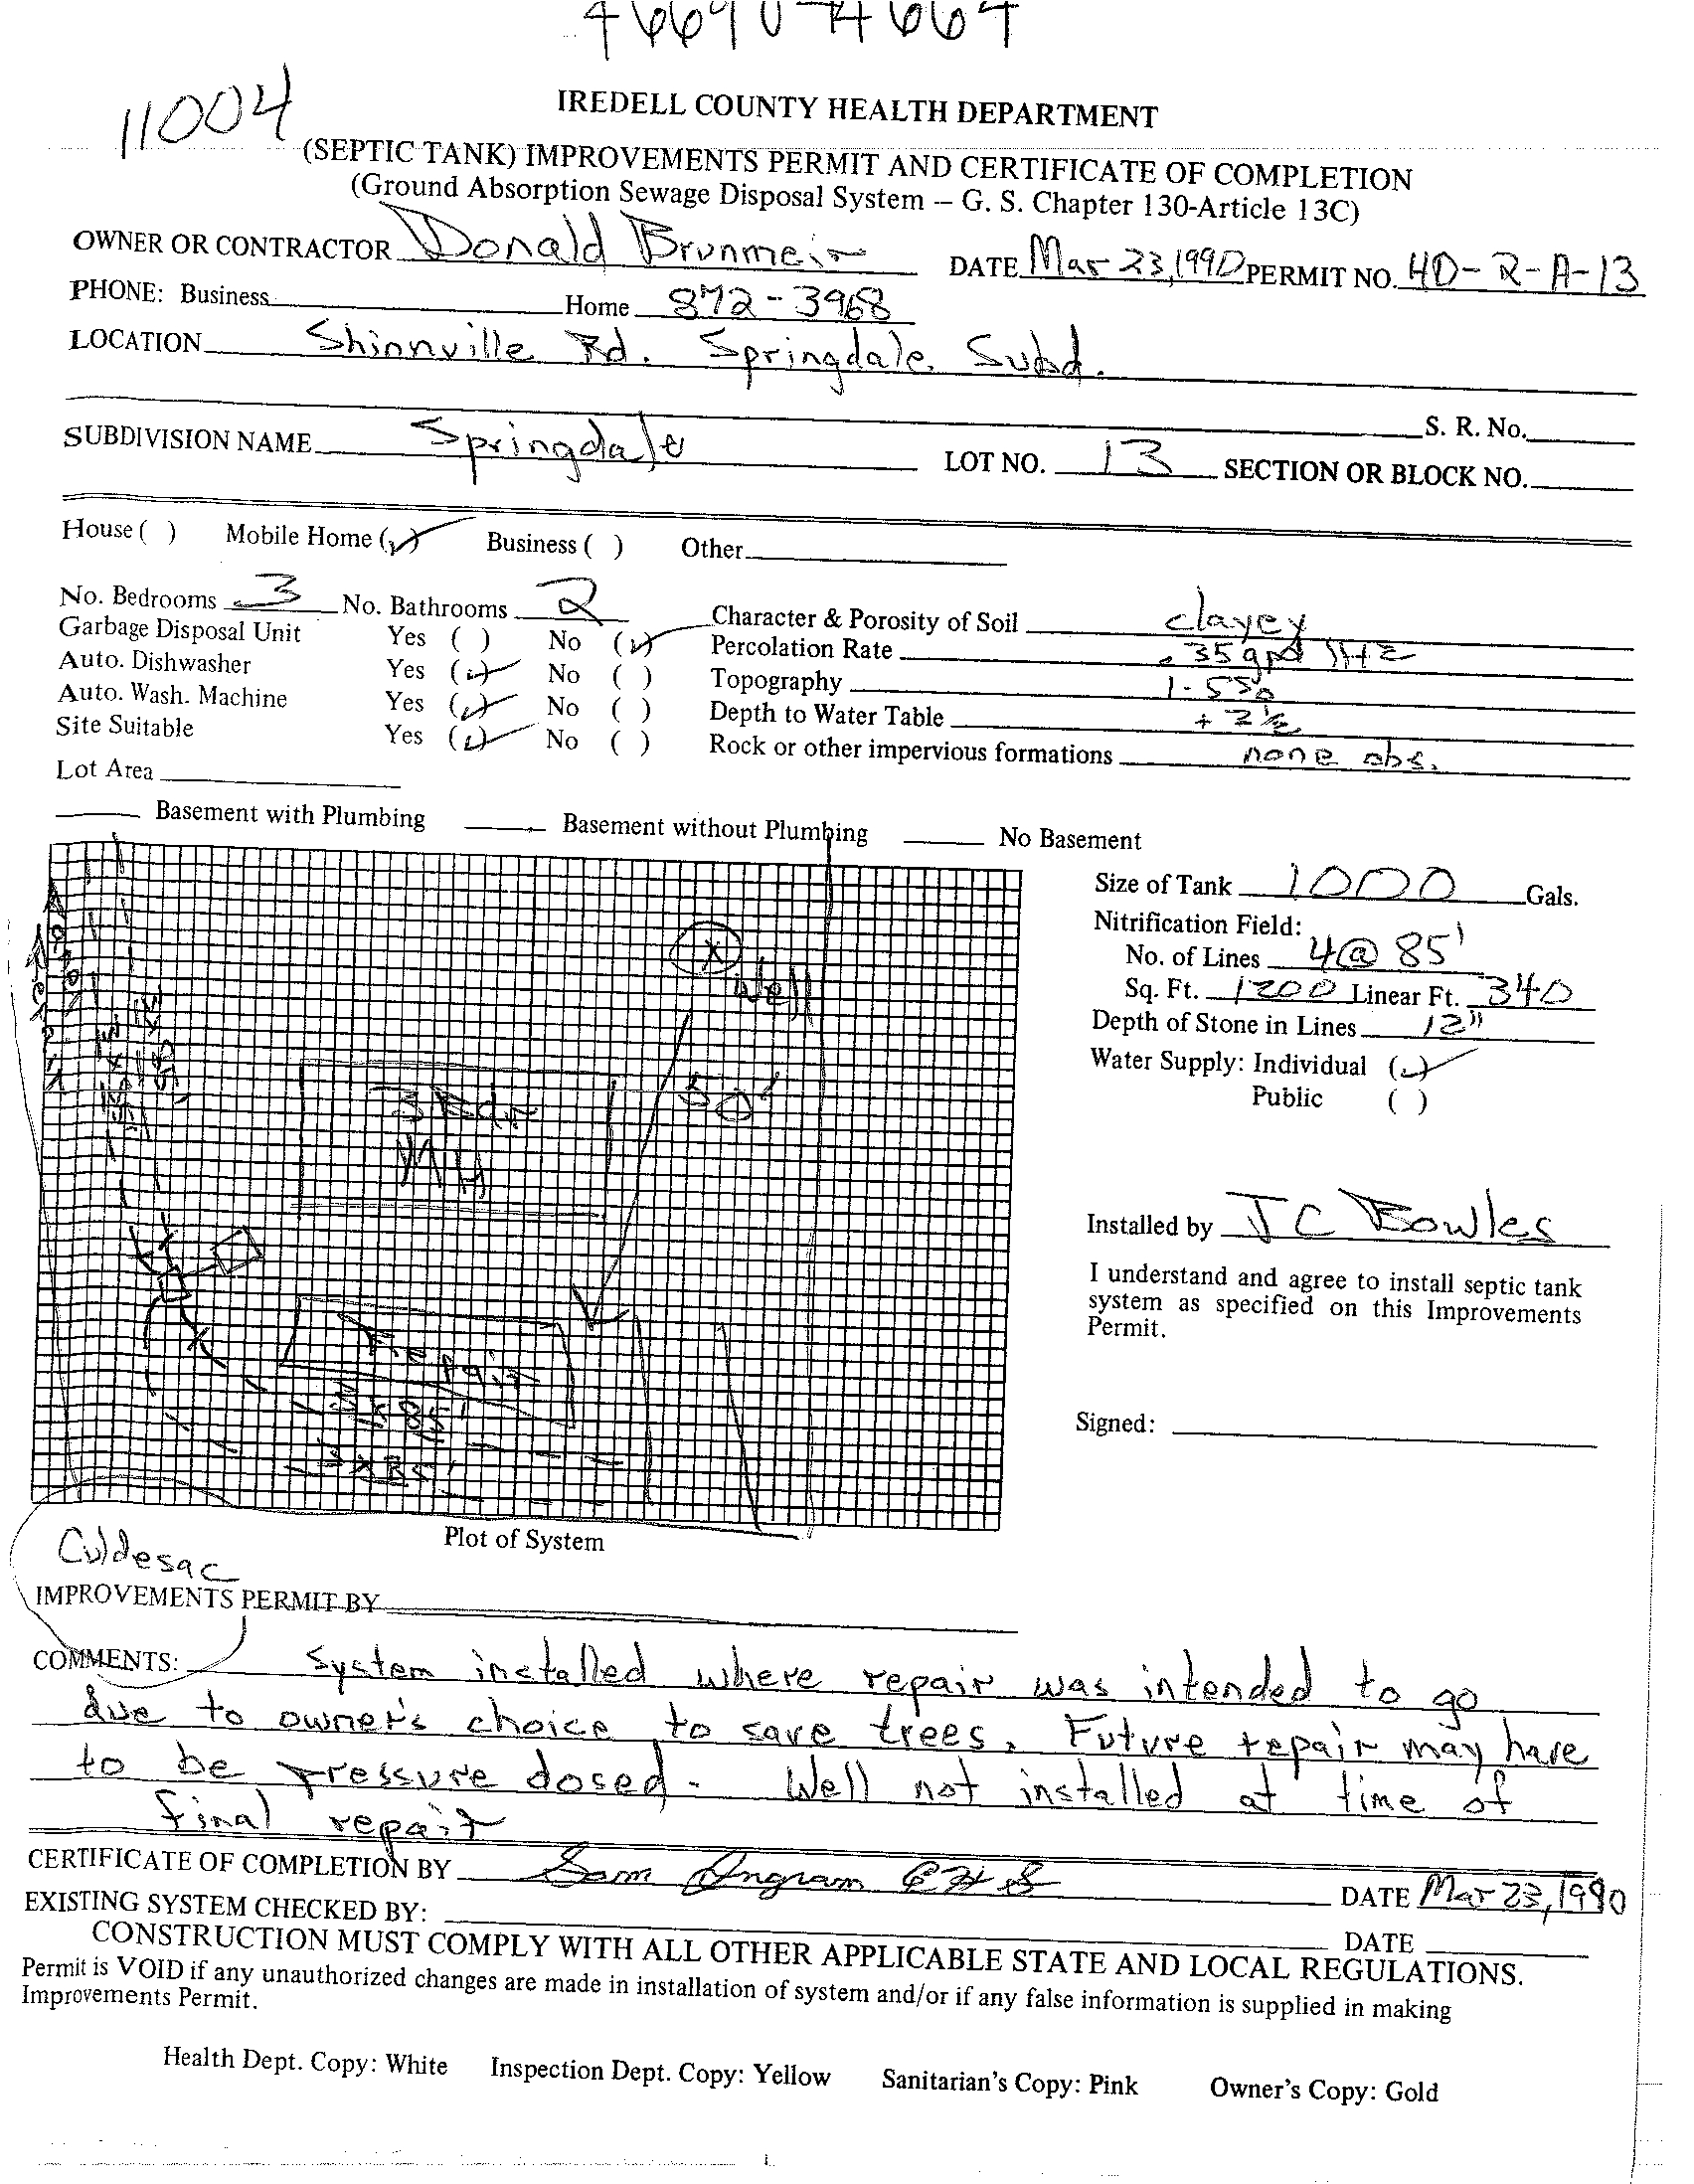 11004
IREDELL COUNTY HEALTH DEPARTMENT
(SEPTIC TANK) IMPROVEMENTS PERMIT AND CERTIFICATE OF COMPLETION
(Ground Absorption Sewage Disposal System – G. S. Chapter 130-Article 13C)
OWNER OR CONTRACTOR Donald Brunmeir DATE Mar 23, 1990 PERMIT NO. 4D-2-A-13
PHONE: Business Home 872-3968
LOCATION Shinnville Rd. Springdale Subd.
S. R. No.
SUBDIVISION NAME Springdale LOT NO. 13 SECTION OR BLOCK NO.
House ( ) Mobile Home (✓) Business ( ) Other
No. Bedrooms 3 No. Bathrooms 2 Character & Porosity of Soil clayey
Garbage Disposal Unit Yes ( ) No (✓) Percolation Rate .35 gpd
Auto. Dishwasher Yes (✓) No ( ) Topography 1-5%
Auto. Wash. Machine Yes (✓) No ( ) Depth to Water Table + 2½
Site Suitable Yes (✓) No ( ) Rock or other impervious formations none obs.
Lot Area
Basement with Plumbing Basement without Plumbing No Basement
Size of Tank 1000 Gals.
Nitrification Field:
No. of Lines 4@ 85'
Sq. Ft. 1200 Linear Ft. 340
Depth of Stone in Lines 12"
Water Supply: Individual (✓)
Public ( )
X
Well
50'
3 Bdr
MH
Repair
Installed by JC Bowles
I understand and agree to install septic tank
system as specified on this Improvements
Permit.
Signed:
Plot of System
Culdesac
IMPROVEMENTS PERMIT BY
COMMENTS: System installed where repair was intended to go
due to owner's choice to save trees. Future repair may have
to be pressure dosed. Well not installed at time of
final repair
CERTIFICATE OF COMPLETION BY Sam Ingram EHS DATE Mar 23, 1990
EXISTING SYSTEM CHECKED BY: DATE
CONSTRUCTION MUST COMPLY WITH ALL OTHER APPLICABLE STATE AND LOCAL REGULATIONS.
Permit is VOID if any unauthorized changes are made in installation of system and/or if any false information is supplied in making
Improvements Permit.
Health Dept. Copy: White Inspection Dept. Copy: Yellow Sanitarian's Copy: Pink Owner's Copy: Gold